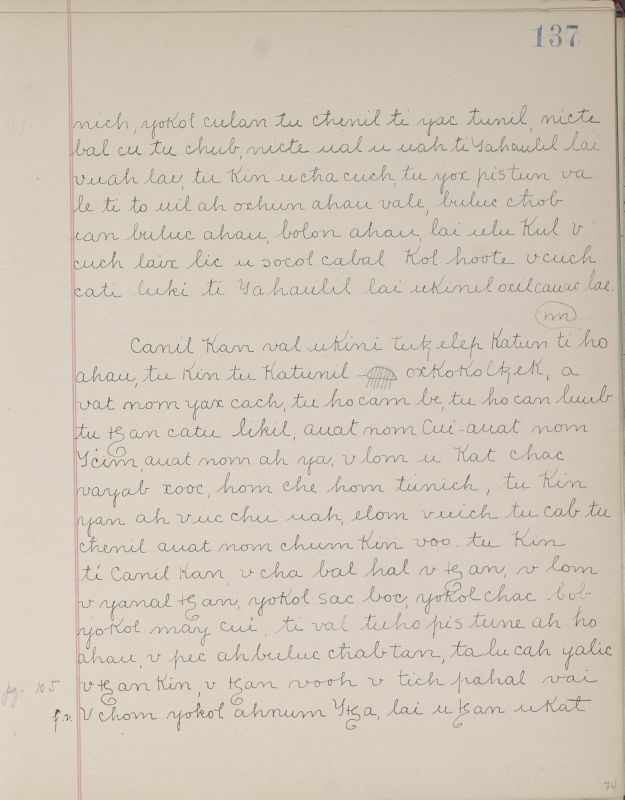 137
nich, yokol culan tu chenil ti yac tunil, nicte
bal cu tu chub, nicte ual u uah ti Yahaulil lai
vuah lae, tu Kin ucha cuch, tu yox pistun va
le ti to uil ah oxhun ahau vale, buluc chob
can buluc ahau, bolon ahau, lai ulu Kul v
cuch laix lic u socol cabal Kol hoote vcuch
cati luki ti Yahaulil lai ukinil oxil cauac lae.
nn
Canil Kan val ukini tutz elep Katun ti ho
ahau, tu Kin tu Katunil oxKoKoltzeK, a
vat nom yax cach, tu hocam be, tu ho can luub
tu tzan catu likil, auat nom Cui-auat nom
Ycim, auat nom ah ya, v lom u Kat chac
vayab xooc, hom che hom tunich, tu Kin
yan ah vuc chu uah, elom vuich tu cab tu
chenil auat nom chum Kin voo. tu Kin
ti Canil Kan, v cha bal hal v tzan, v lom
v yanal tzan, yokol sac boc, yokol chac bob
yoKol may cui, ti val tuho pis tune ah ho
ahau, v pec ahbuluc chabtan, talu cah yalic
pg. 105
v tzan Kin, v tzan vooh v tich pahal vai
f.v. V chom yokol ahnum Ytza, lai u tzan uKat
74